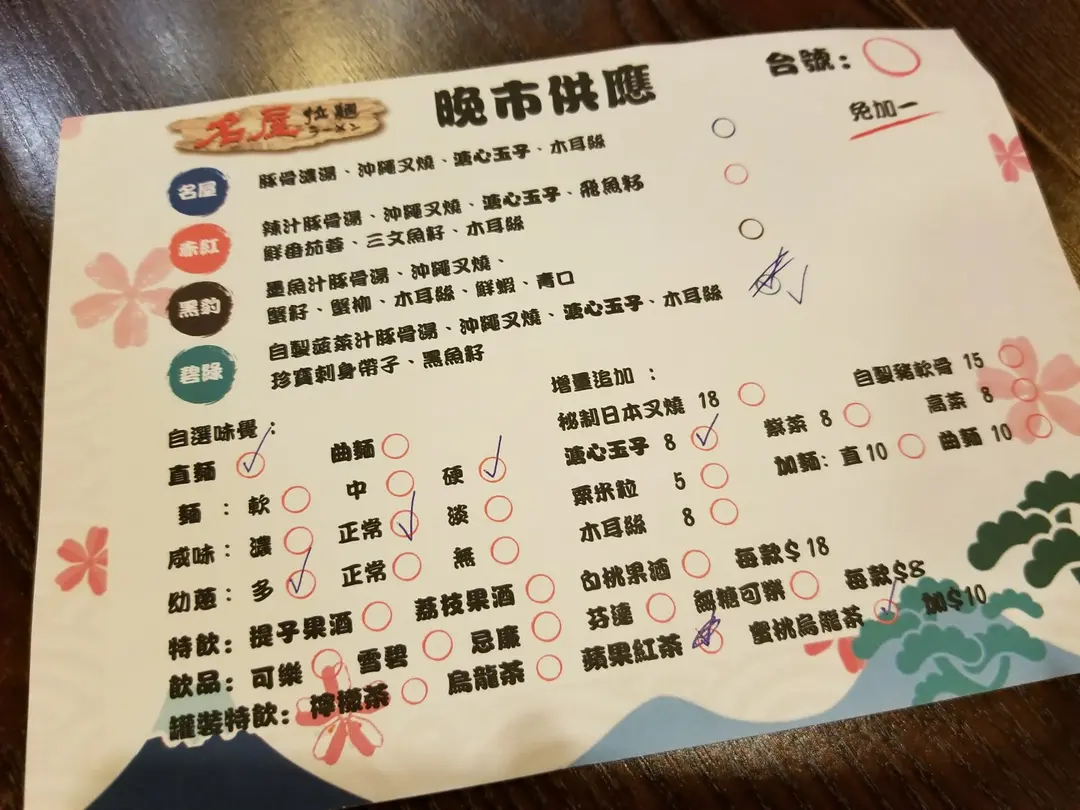 名屋 拉麵
ラーメン
晚市供應
台號:
免加一
名屋 豚骨濃湯、沖繩叉燒、溏心玉子、木耳絲
赤紅 辣汁豚骨湯、沖繩叉燒、溏心玉子、飛魚籽
鮮番茄蓉、三文魚籽、木耳絲
黑豹 墨魚汁豚骨湯、沖繩叉燒、
蟹籽、蟹柳、木耳絲、鮮蝦、青口
碧綠 自製菠菜汁豚骨湯、沖繩叉燒、溏心玉子、木耳絲
珍寶刺身帶子、黑魚籽
自選味覺:
直麵 曲麵
麵:軟 中 硬
咸味:濃 正常 淡
幼蔥:多 正常 無
增量追加:
秘制日本叉燒 18 自製豬軟骨 15
溏心玉子 8 紫菜 8 高菜 8
粟米粒 5 加麵:直10 曲麵 10
木耳絲 8
特飲:提子果酒 荔枝果酒 白桃果酒 每款$18
飲品:可樂 雪碧 忌廉 芬達 無糖可樂 每款$8
罐裝特飲:檸檬茶 烏龍茶 蘋果紅茶 蜜桃烏龍茶 加$10